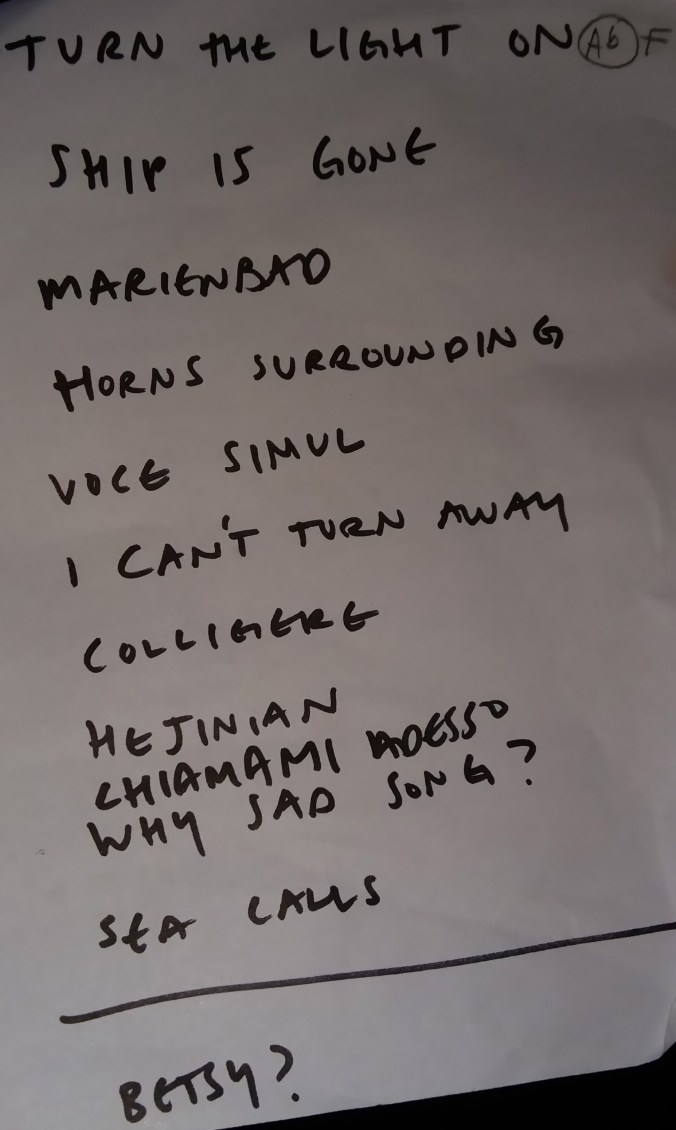 TURN THE LIGHT ON Ab F
SHIP IS GONE
MARIENBAD
HORNS SURROUNDING
VOCE SIMUL
I CAN'T TURN AWAY
COLLIGERE
HEJINIAN
CHIAMAMI ADESSO
WHY SAD SONG?
SEA CALLS
BETSY?